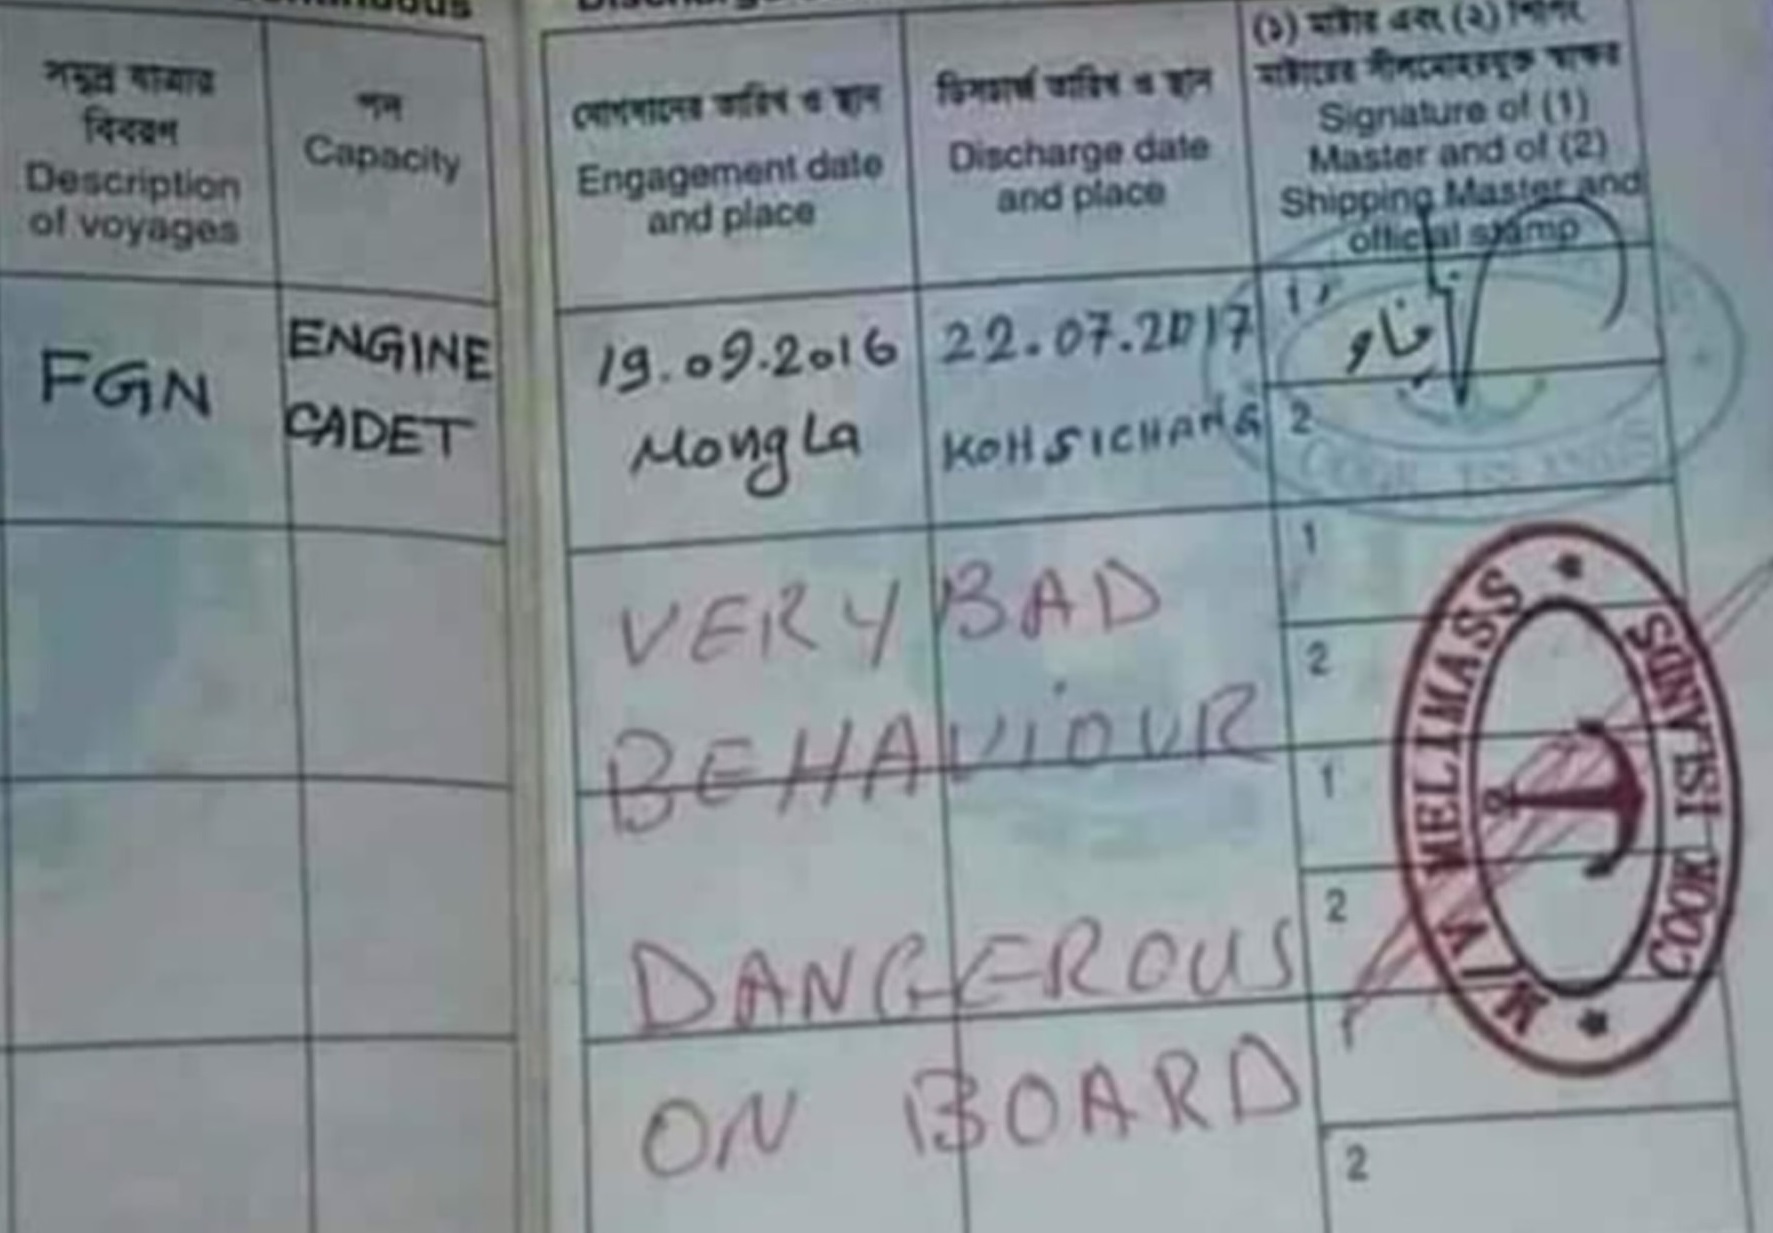 সমুদ্র যাত্রার
বিবরণ
Description
of voyages
পদ
Capacity
যোগদানের তারিখ ও স্থান
Engagement date
and place
ডিসচার্জ তারিখ ও স্থান
Discharge date
and place
(১) মাষ্টার এবং (২) শিপিং
মাষ্টারের সীলমোহরযুক্ত স্বাক্ষর
Signature of (1)
Master and of (2)
Shipping Master and
official stamp
FGN
ENGINE
CADET
19.09.2016
Mongla
22.07.2017
KOHSICHANG
1
2
COOK ISLANDS
VERY BAD
BEHAVIOUR
DANGEROUS
ON BOARD
1
2
1
2
1
2
M/V MELIMASS
COOK ISLANDS